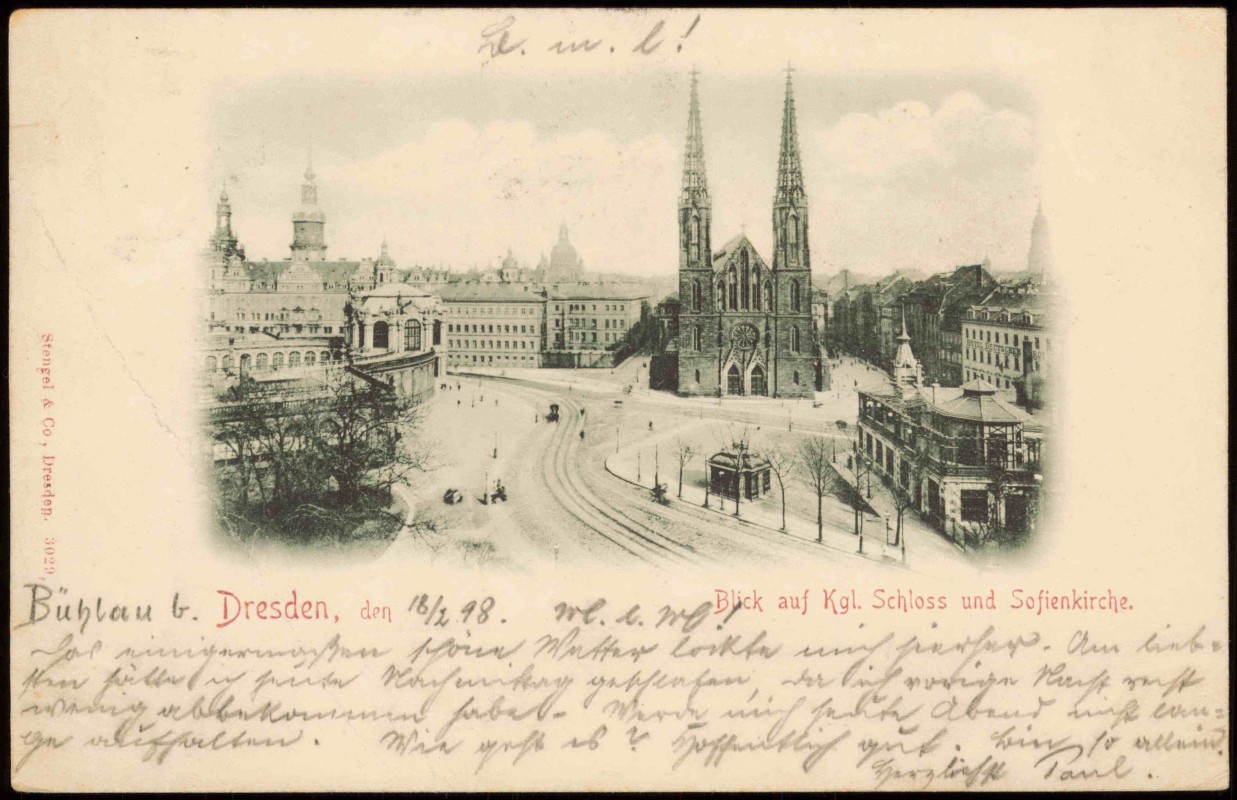 L. m. l!
Stengel & Co., Dresden. 3029.
Bühlau b. Dresden, den 18/2 98.
Blick auf Kgl. Schloss und Sofienkirche.
Das einigermaßen schöne Wetter lockte mich hierher. Am lieb-
sten hätte ich heute Nachmittag geschlafen, da ich vorige Nacht recht
wenig abbekommen habe. Werde mich heute Abend nicht lan-
ge aufhalten. Wie geht es? Hoffentlich gut. Bin so allein.
Herzlichst Paul.